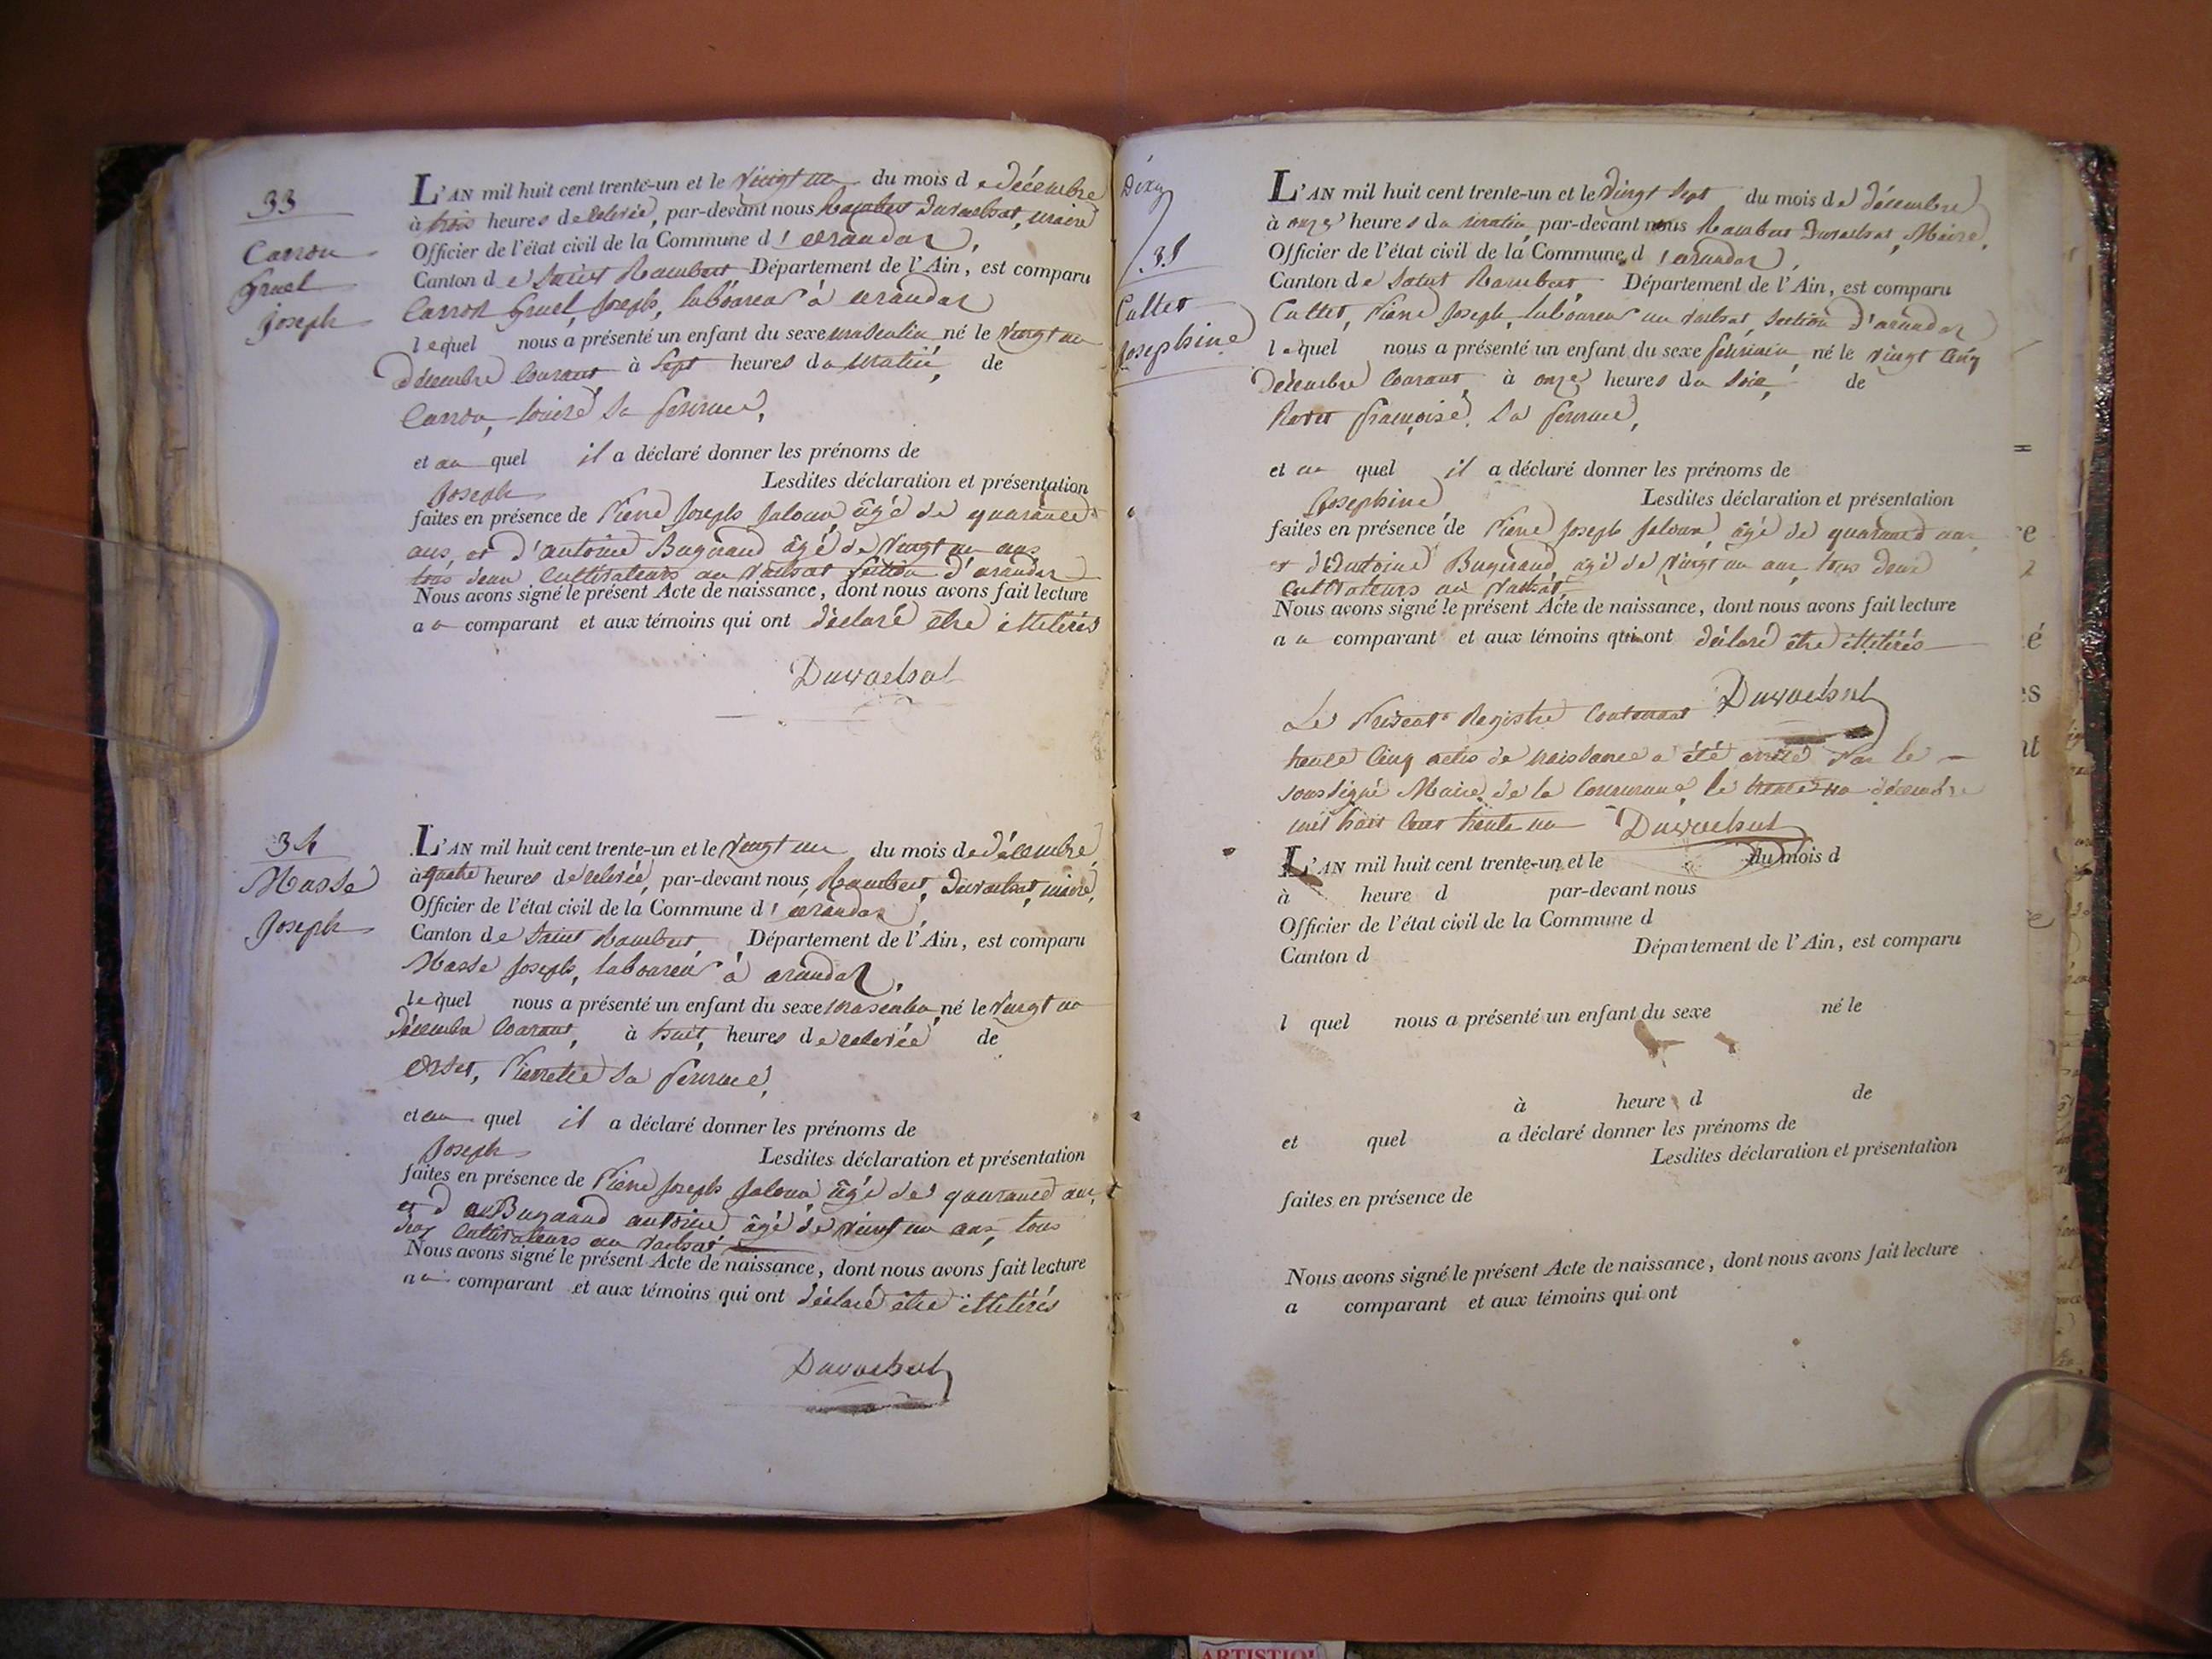 33
Carron
Gruel
Joseph
L'AN mil huit cent trente-un et le Vingt un du mois de décembre
à trois heures de relevée, par-devant nous Rambert Duvachat, maire
Officier de l'état civil de la Commune d'arandaz,
Canton de Saint Rambert Département de l'Ain, est comparu
Carron Gruel, Joseph, laboureur à arandaz
lequel nous a présenté un enfant du sexe masculin né le Vingt un
décembre Courant, à Sept heures du matin, de
Carron, sa femme,
et au quel il a déclaré donner les prénoms de
Joseph Lesdites déclaration et présentation
faites en présence de Pierre Joseph Juloux, âgé de quarante
ans, et d'antoine Bugnand âgé de Vingt un ans
tous deux Cultivateurs au Vachat Section d'arandaz
Nous avons signé le présent Acte de naissance, dont nous avons fait lecture
au comparant et aux témoins qui ont déclaré être illitérés
Duvachat
34
Masse
Joseph
L'AN mil huit cent trente-un et le Vingt un du mois de décembre
à quatre heures de relevée, par-devant nous Rambert, Duvachat, maire,
Officier de l'état civil de la Commune d'arandaz,
Canton de Saint Rambert Département de l'Ain, est comparu
Masse Joseph, laboureur à arandaz,
lequel nous a présenté un enfant du sexe masculin né le Vingt un
décembre Courant, à huit, heures de relevée de
Orset, Pierrette sa femme,
et au quel il a déclaré donner les prénoms de
Joseph Lesdites déclaration et présentation
faites en présence de Pierre Joseph Juloux âgé de quarante ans,
et d Bugnand antoine âgé de Vingt un ans, tous
deux Cultivateurs au Vachat
Nous avons signé le présent Acte de naissance, dont nous avons fait lecture
au comparant et aux témoins qui ont déclaré être illitérés
Duvachat
35
Cullet
Josephine
L'AN mil huit cent trente-un et le Vingt Sept du mois de décembre
à onze heures du matin, par-devant nous Rambert Duvachat, Maire,
Officier de l'état civil de la Commune d'arandaz,
Canton de Saint Rambert Département de l'Ain, est comparu
Cullet, Pierre Joseph, laboureur au Vachat, Section d'arandaz
lequel nous a présenté un enfant du sexe féminin né le Vingt Cinq
Décembre Courant, à onze heures du Soir, de
françoise, sa femme,
et au quel il a déclaré donner les prénoms de
Josephine Lesdites déclaration et présentation
faites en présence de Pierre Joseph Juloux, âgé de quarante ans
et d'Antoine Bugnand, agé de Vingt un ans, tous deux
Cultivateurs au Vachat,
Nous avons signé le présent Acte de naissance, dont nous avons fait lecture
au comparant et aux témoins qui ont déclaré être illitérés
Duvachat
Le Présent Registre Contenant
trente Cinq actes de naissance a été arrêté Par le
soussigné Maire de la Commune, le trente un décembre
mil huit Cent trente un Duvachat
L'AN mil huit cent trente-un et le du mois d
à heure d par-devant nous
Officier de l'état civil de la Commune d
Canton d Département de l'Ain, est comparu
l quel nous a présenté un enfant du sexe né le
à heure d de
et quel a déclaré donner les prénoms de
Lesdites déclaration et présentation
faites en présence de
Nous avons signé le présent Acte de naissance, dont nous avons fait lecture
a comparant et aux témoins qui ont